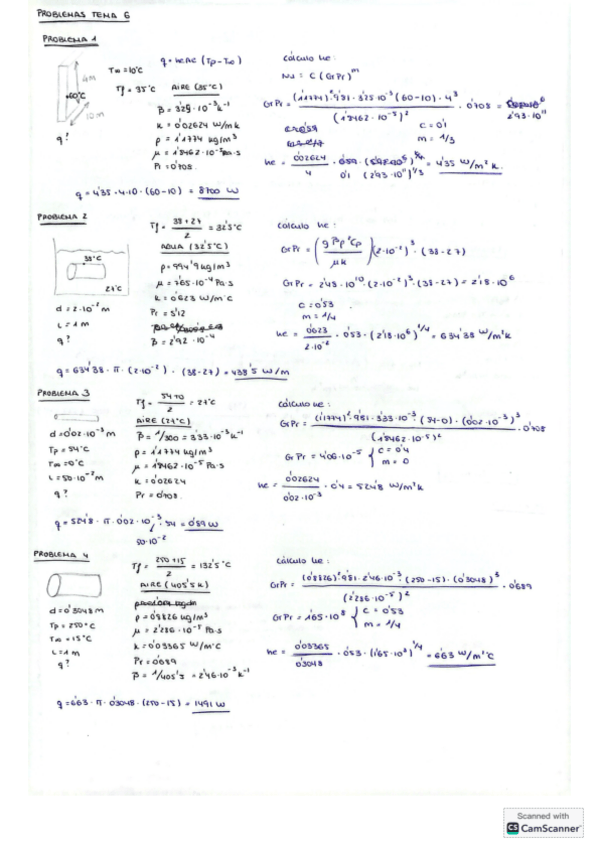 PROBLEMAS TEMA 6
PROBLEMA 1
q = hc Ae (Tp-T∞)
T∞ = 10°C
60°C
4m
10m
q?
Tf = 35°C
AIRE (35°C)
β = 3'25·10⁻³ k⁻¹
k = 0'02624 W/mk
ρ = 1'1774 kg/m³
μ = 1'8462·10⁻⁵ Pa·s
Pr = 0'708
cálculo hc:
Nu = C (GrPr)ᵐ
GrPr = (1'1774)²·9'81·3'25·10⁻³ (60-10)·4³ / (1'8462·10⁻⁵)² · 0'708 = 2'93·10¹¹
C = 0'1
m = 1/3
hc = 0'02624 / 4 · 0'1 (2'93·10¹¹)^1/3 = 4'35 W/m²k
q = 4'35·4·10·(60-10) = 8700 W
PROBLEMA 2
38°C
27°C
d = 2·10⁻² m
L = 1 m
q?
Tf = 38+27 / 2 = 32'5°C
AGUA (32'5°C)
ρ = 994'9 kg/m³
μ = 7'65·10⁻⁴ Pa·s
k = 0'623 W/m°C
Pr = 5'12
β = 2'92·10⁻⁴
cálculo hc:
GrPr = (gβρ²Cp / μk) (2·10⁻²)³·(38-27)
GrPr = 2'48·10¹⁰·(2·10⁻²)³·(38-27) = 2'18·10⁶
C = 0'53
m = 1/4
hc = 0'623 / 2·10⁻² · 0'53·(2'18·10⁶)^1/4 = 634'38 W/m²k
q = 634'38·π·(2·10⁻²)·(38-27) = 438'5 W/m
PROBLEMA 3
d = 0'02·10⁻³ m
Tp = 54°C
T∞ = 0°C
L = 50·10⁻² m
q?
Tf = 54+0 / 2 = 27°C
AIRE (27°C)
β = 1/300 = 3'33·10⁻³ k⁻¹
ρ = 1'1774 kg/m³
μ = 1'8462·10⁻⁵ Pa·s
k = 0'02624
Pr = 0'708
cálculo hc:
GrPr = (1'1774)²·9'81·3'33·10⁻³·(54-0)·(0'02·10⁻³)³ / (1'8462·10⁻⁵)² · 0'708
GrPr = 4'06·10⁻⁵ { C = 0'4
m = 0
hc = 0'02624 / 0'02·10⁻³ · 0'4 = 524'8 W/m²k
q = 524'8·π·0'02·10⁻³·54 = 0'89 W
50·10⁻²
PROBLEMA 4
d = 0'3048 m
Tp = 250°C
T∞ = 15°C
L = 1 m
q?
Tf = 250+15 / 2 = 132'5°C
AIRE (405'5 k)
ρ = 0'8826 kg/m³
μ = 2'286·10⁻⁵ Pa·s
k = 0'03365 W/m°C
Pr = 0'689
β = 1/405'5 = 2'46·10⁻³ k⁻¹
cálculo hc:
GrPr = (0'8826)²·9'81·2'46·10⁻³·(250-15)·(0'3048)³ / (2'286·10⁻⁵)² · 0'689
GrPr = 1'65·10⁸ { C = 0'53
m = 1/4
hc = 0'03365 / 0'3048 · 0'53·(1'65·10⁸)^1/4 = 6'63 W/m²°C
q = 6'63·π·0'3048·(250-15) = 1491 W
Scanned with
CS CamScanner